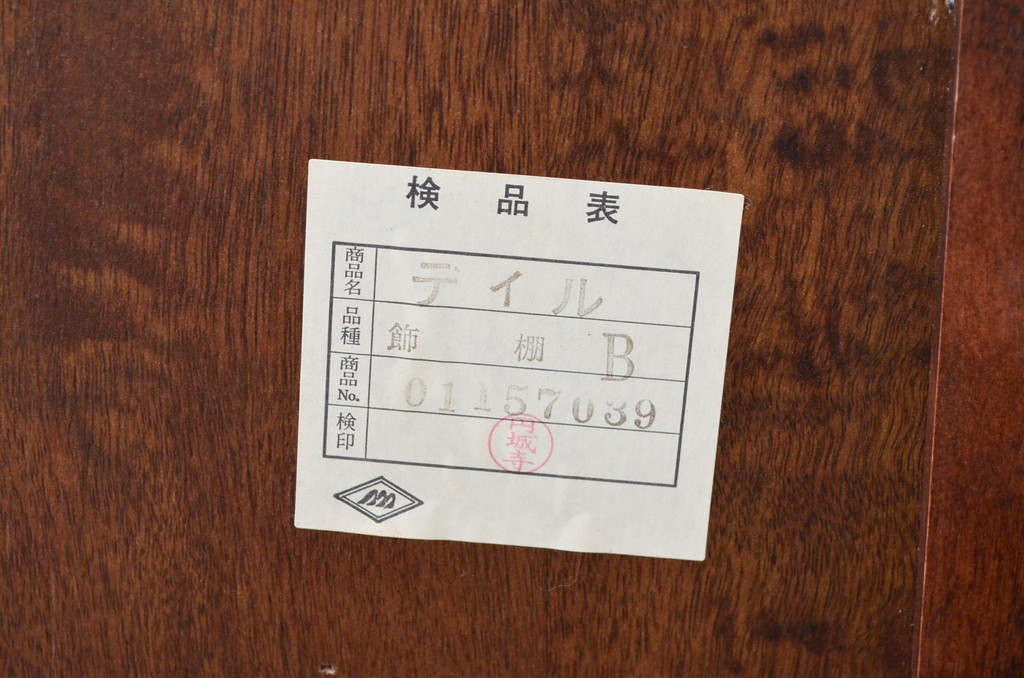 検品表
商品名 デイル
品種 飾棚 B
商品No. 01157039
検印 円城寺